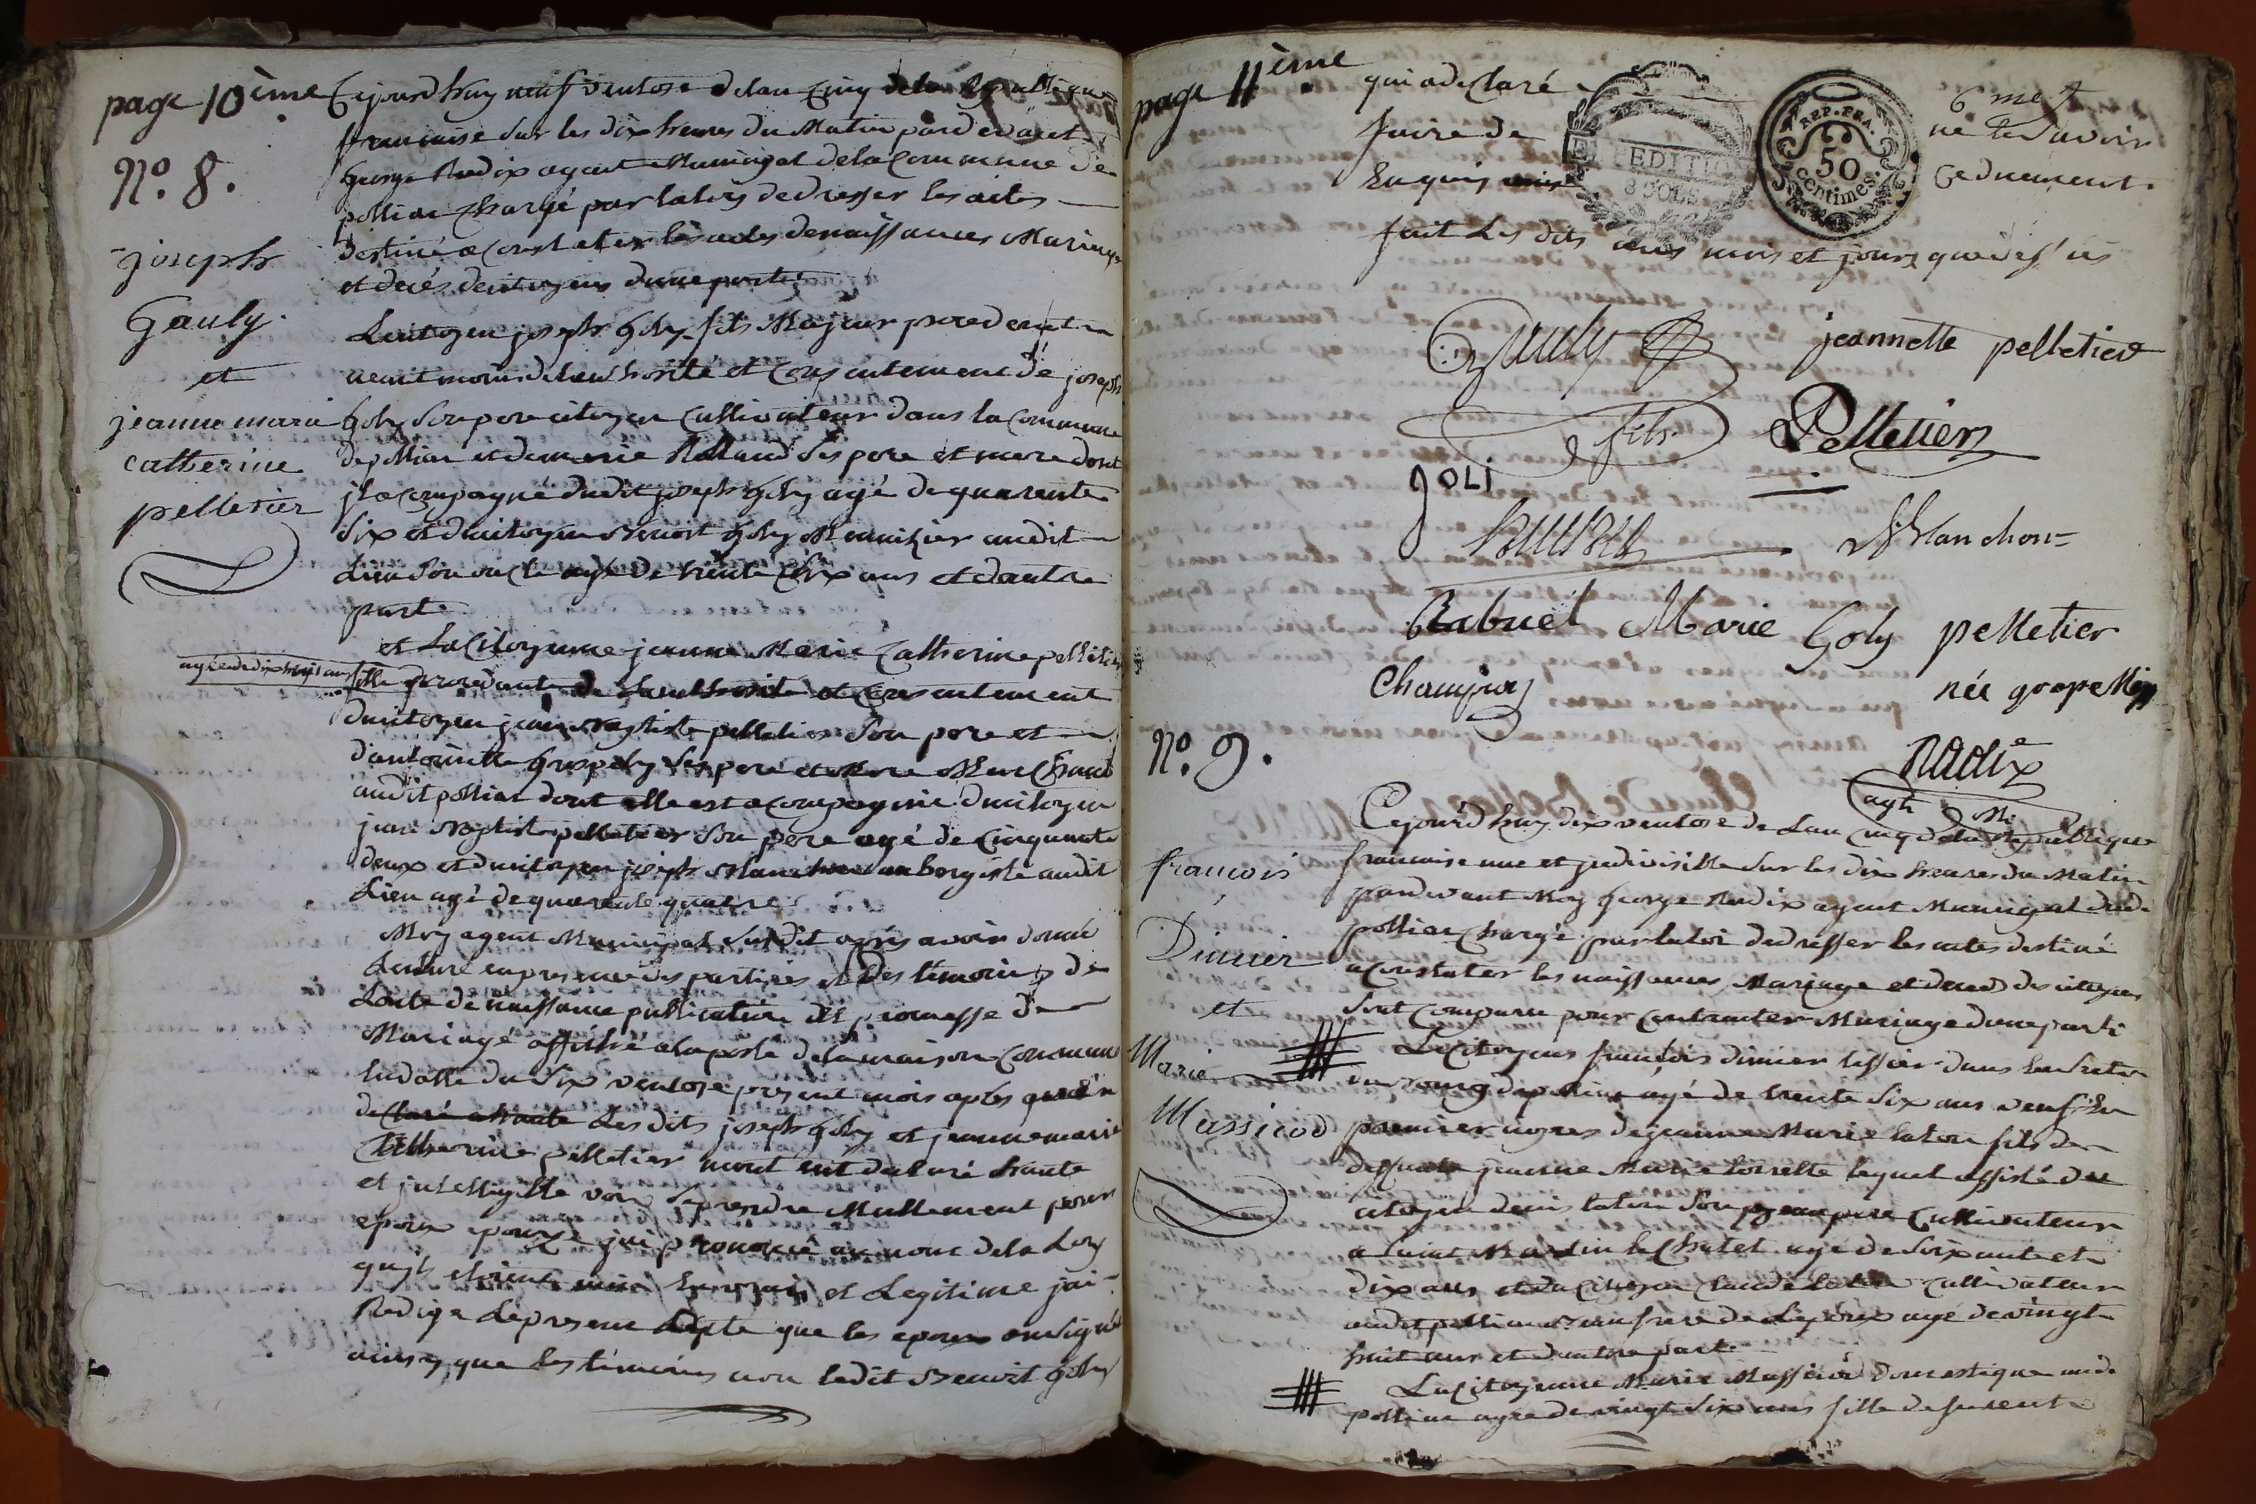 page 10ème
N°. 8.
joseph
Gauly.
et
jeanne marie
catherine
pelletier
Cejourdhuy neuf ventose delan Cinq dela Republique
francaise sur les dix heures du Matin pardevant
George Radix agent Municipal dela Commune de
polliac chargé par la loy de dresser les actes
destiné a Constater les actes denaissances Mariage
et décés decitoyens dune part.
Lecitoyen joseph Goly fils Majeur procedent
neant moins delauthorité et Consentement dé joseph
Goly son pere citoyen Cultivateur dans la Commune
de polliac et de marie Rolland ses pere et mere dont
jl acompagné dudit joseph Goly agé de quarente
six et ducitoyen Benoit Goly Meunier audit
Lieu son oncle agé de trente six ans et dautre
part
et La Citoyenne jeanne Marie Catherine pelletier
agée de dix huit ans
fille procedante de Lauthorité et Consentement
ducitoyen jean Baptiste pelletier son pere et
dantoinette Gropelly ses pere et Mere Marchand
audit polliac dont elle est acompagnié ducitoyen
jean Baptiste pelletier son pere agé de Cinquante
deux et ducitoyen joseph Blanchon aubergiste audit
Lieu agé de quarente quatre
Moy agent Municipal susdit après avoir donné
Lecture enpresence des parties et des témoins de
Lacte de naissance publication de promesse de
Mariage affiché ala porte dela maison Commune
endatte du six ventose present mois après
declaré a haute Les dits joseph Goly et jeanne marie
Catherine pelletier mont ont declaré haute
et jntelligible voix se prendre Mutlement pour
epoux jai prononcé au nom dela Loy
quils etoient unis en Mariage et Legitime jai
Redigé Lepresent acte que les epoux onsigné
ainsy que les témoins non ledit Benoit Goly
page 11ème
qui a declaré
faire de
Enquis
EXPEDITION
8 SOLS
REP. FRA.
50
centimes.
ne le savoir
Ceduement
fait Les dits ans mois et jours quedessus
Gauly
fils
jeannette pelletier
Pelletier
JOLI
Blanchon
Rabuel Marie Goly pelletier
née gropelly
Radix
agt M.
N°. 9.
françois
Dimier
et
Marie
Massicod
Cejourdhuy dix ventose de Lan Cinq dela Republique
francaise une et jndivisible sur les dix heures du Matin
pardevant Moy George Radix agent Municipal dud.
polliac chargé par la loi dedrésser les actes destiné
a Constater les naissances Mariage et deced des citoyens
sont Comparu pour Contracter Mariage dune parti
Lecitoyens françois dimier tissier dans
de polliac agé de trente six ans veuf En
premier noces de jeanne Marie laton fils de
defunte jeanne Marie loirette lequel assisté du
citoyen denis laton son beaupere Cultivateur
a saint Martin le Chatel agé de soixante et
dix ans et du Citoyen Claude laton Cultivateur
audit polliac beaufrere de Lépoux agé de vingt
huit ans et dautre part
La Citoyenne Marie Massicod domestique aud.
polliac agée de vingt six ans fille de